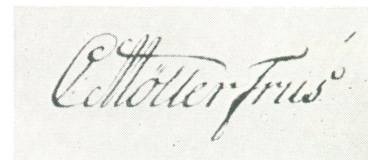 CMöller Friis